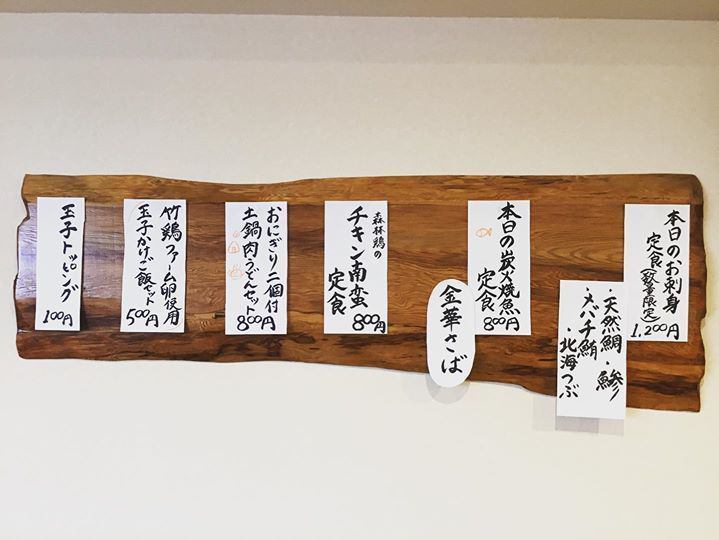 本日のお刺身
定食(数量限定)
1,200円
・天然鯛・鯵
・メバチ鮪
・北海つぶ
本日の炭火焼魚
定食
800円
金華さば
森林鶏の
チキン南蛮
定食
800円
おにぎり二個付
土鍋肉うどんセット
800円
竹鶏ファーム卵使用
玉子かけご飯セット
500円
玉子トッピング
100円